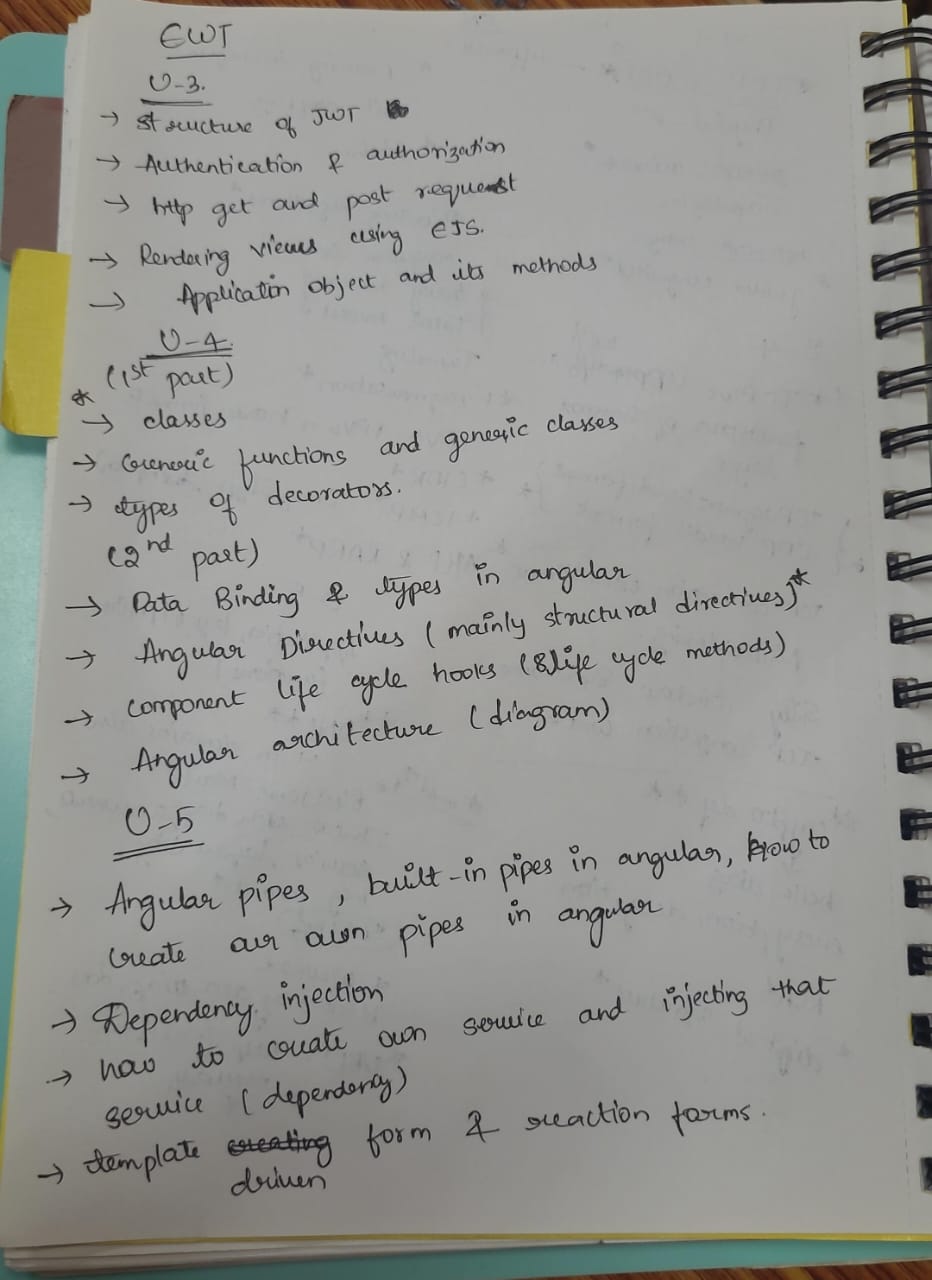 EWT
U-3.
→ structure of JWT
→ Authentication & authorization
→ http get and post request
→ Rendering views using EJS.
→ Application object and its methods
U-4.
(1st part)
* → classes
→ Generic functions and generic classes
→ types of decorators.
(2nd part)
→ Data Binding & types in angular
→ Angular Directives (mainly structural directives)*
→ component life cycle hooks (8 life cycle methods)
→ Angular architecture (diagram)
U-5
→ Angular pipes, built-in pipes in angular, how to
create our own pipes in angular
→ Dependency injection
→ how to create own service and injecting that
service (dependency)
→ template creating form & reaction forms.
driven